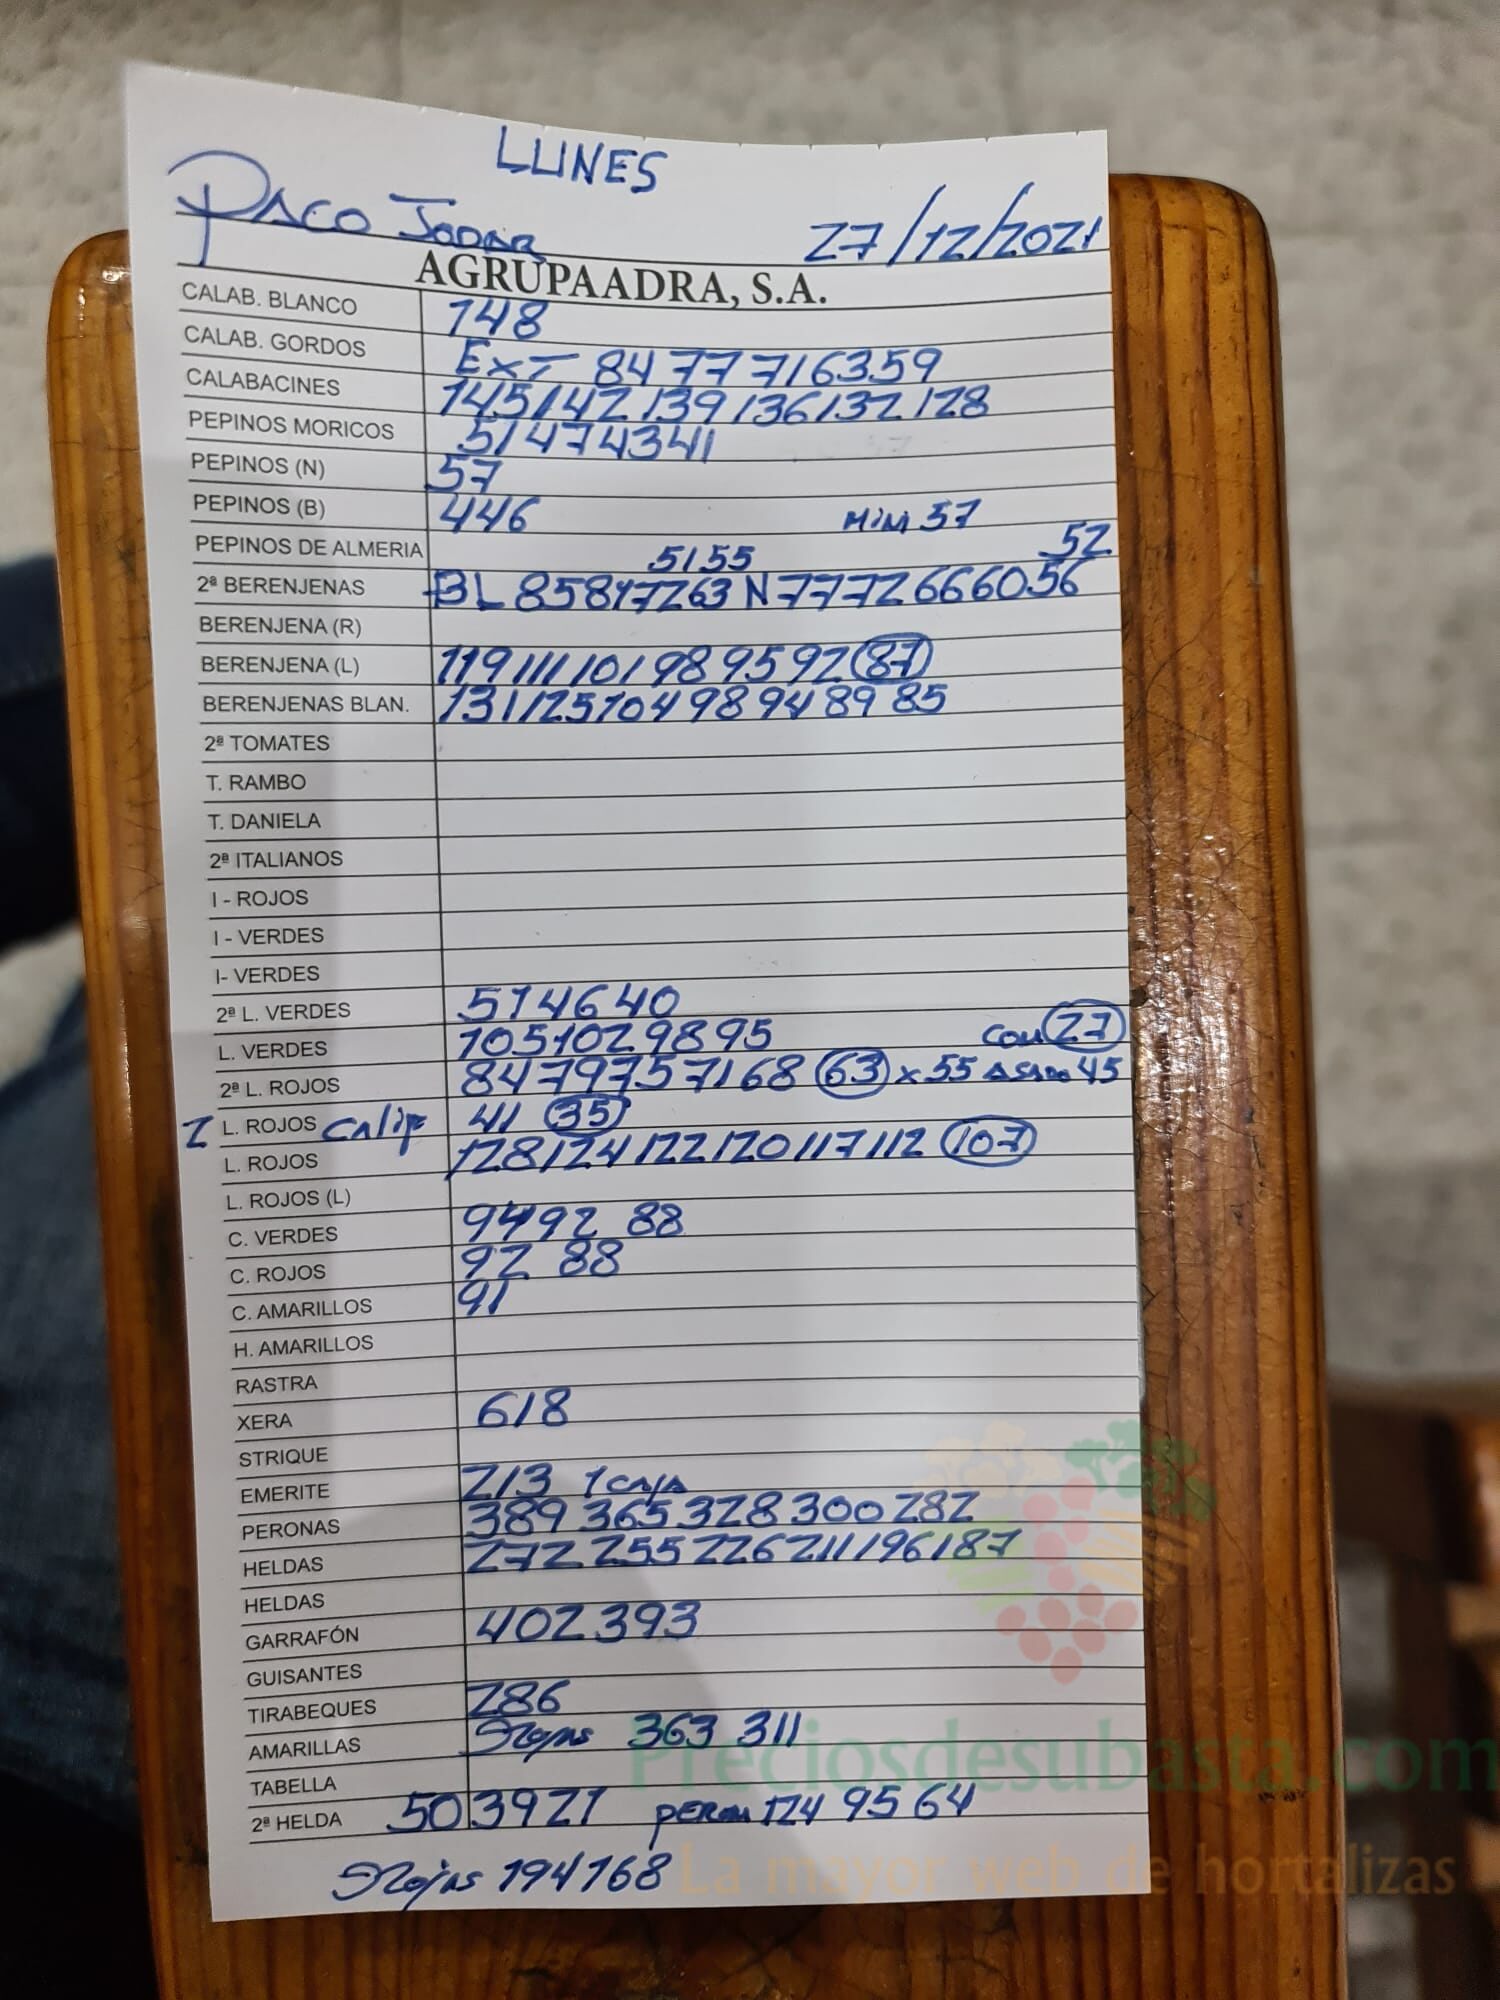 LUNES
PACO JODAR 27/12/2021
AGRUPAADRA, S.A.
CALAB. BLANCO 148
CALAB. GORDOS EXT 84 77 71 63 59
CALABACINES 145 142 139 136 132 128
PEPINOS MORICOS 51 47 43 41
PEPINOS (N) 57
PEPINOS (B) 446 MINI 57
PEPINOS DE ALMERIA 51 55 52
2ª BERENJENAS BL 85 81 72 63 N 77 72 66 60 56
BERENJENA (R)
BERENJENA (L) 119 111 101 98 95 92 87
BERENJENAS BLAN. 131 125 104 98 94 89 85
2ª TOMATES
T. RAMBO
T. DANIELA
2ª ITALIANOS
I - ROJOS
I - VERDES
I- VERDES
2ª L. VERDES 51 46 40
L. VERDES 105 102 98 95 27
2ª L. ROJOS 84 79 75 71 68 63 x 55 ASADO 45
2 L. ROJOS CALIF 41 35
L. ROJOS 128 124 122 120 117 112 107
L. ROJOS (L)
C. VERDES 94 92 88
C. ROJOS 92 88
C. AMARILLOS 91
H. AMARILLOS
RASTRA
XERA 618
STRIQUE
EMERITE 213 1 CAJA
PERONAS 389 365 328 300 282
HELDAS 272 255 226 211 196 187
HELDAS
GARRAFÓN 402 393
GUISANTES
TIRABEQUES 286
AMARILLAS Rojas 363 311
TABELLA
2ª HELDA 50 39 21 124 95 64
Rojas 194 168
Preciosdesubasta.com
La mayor web de hortalizas